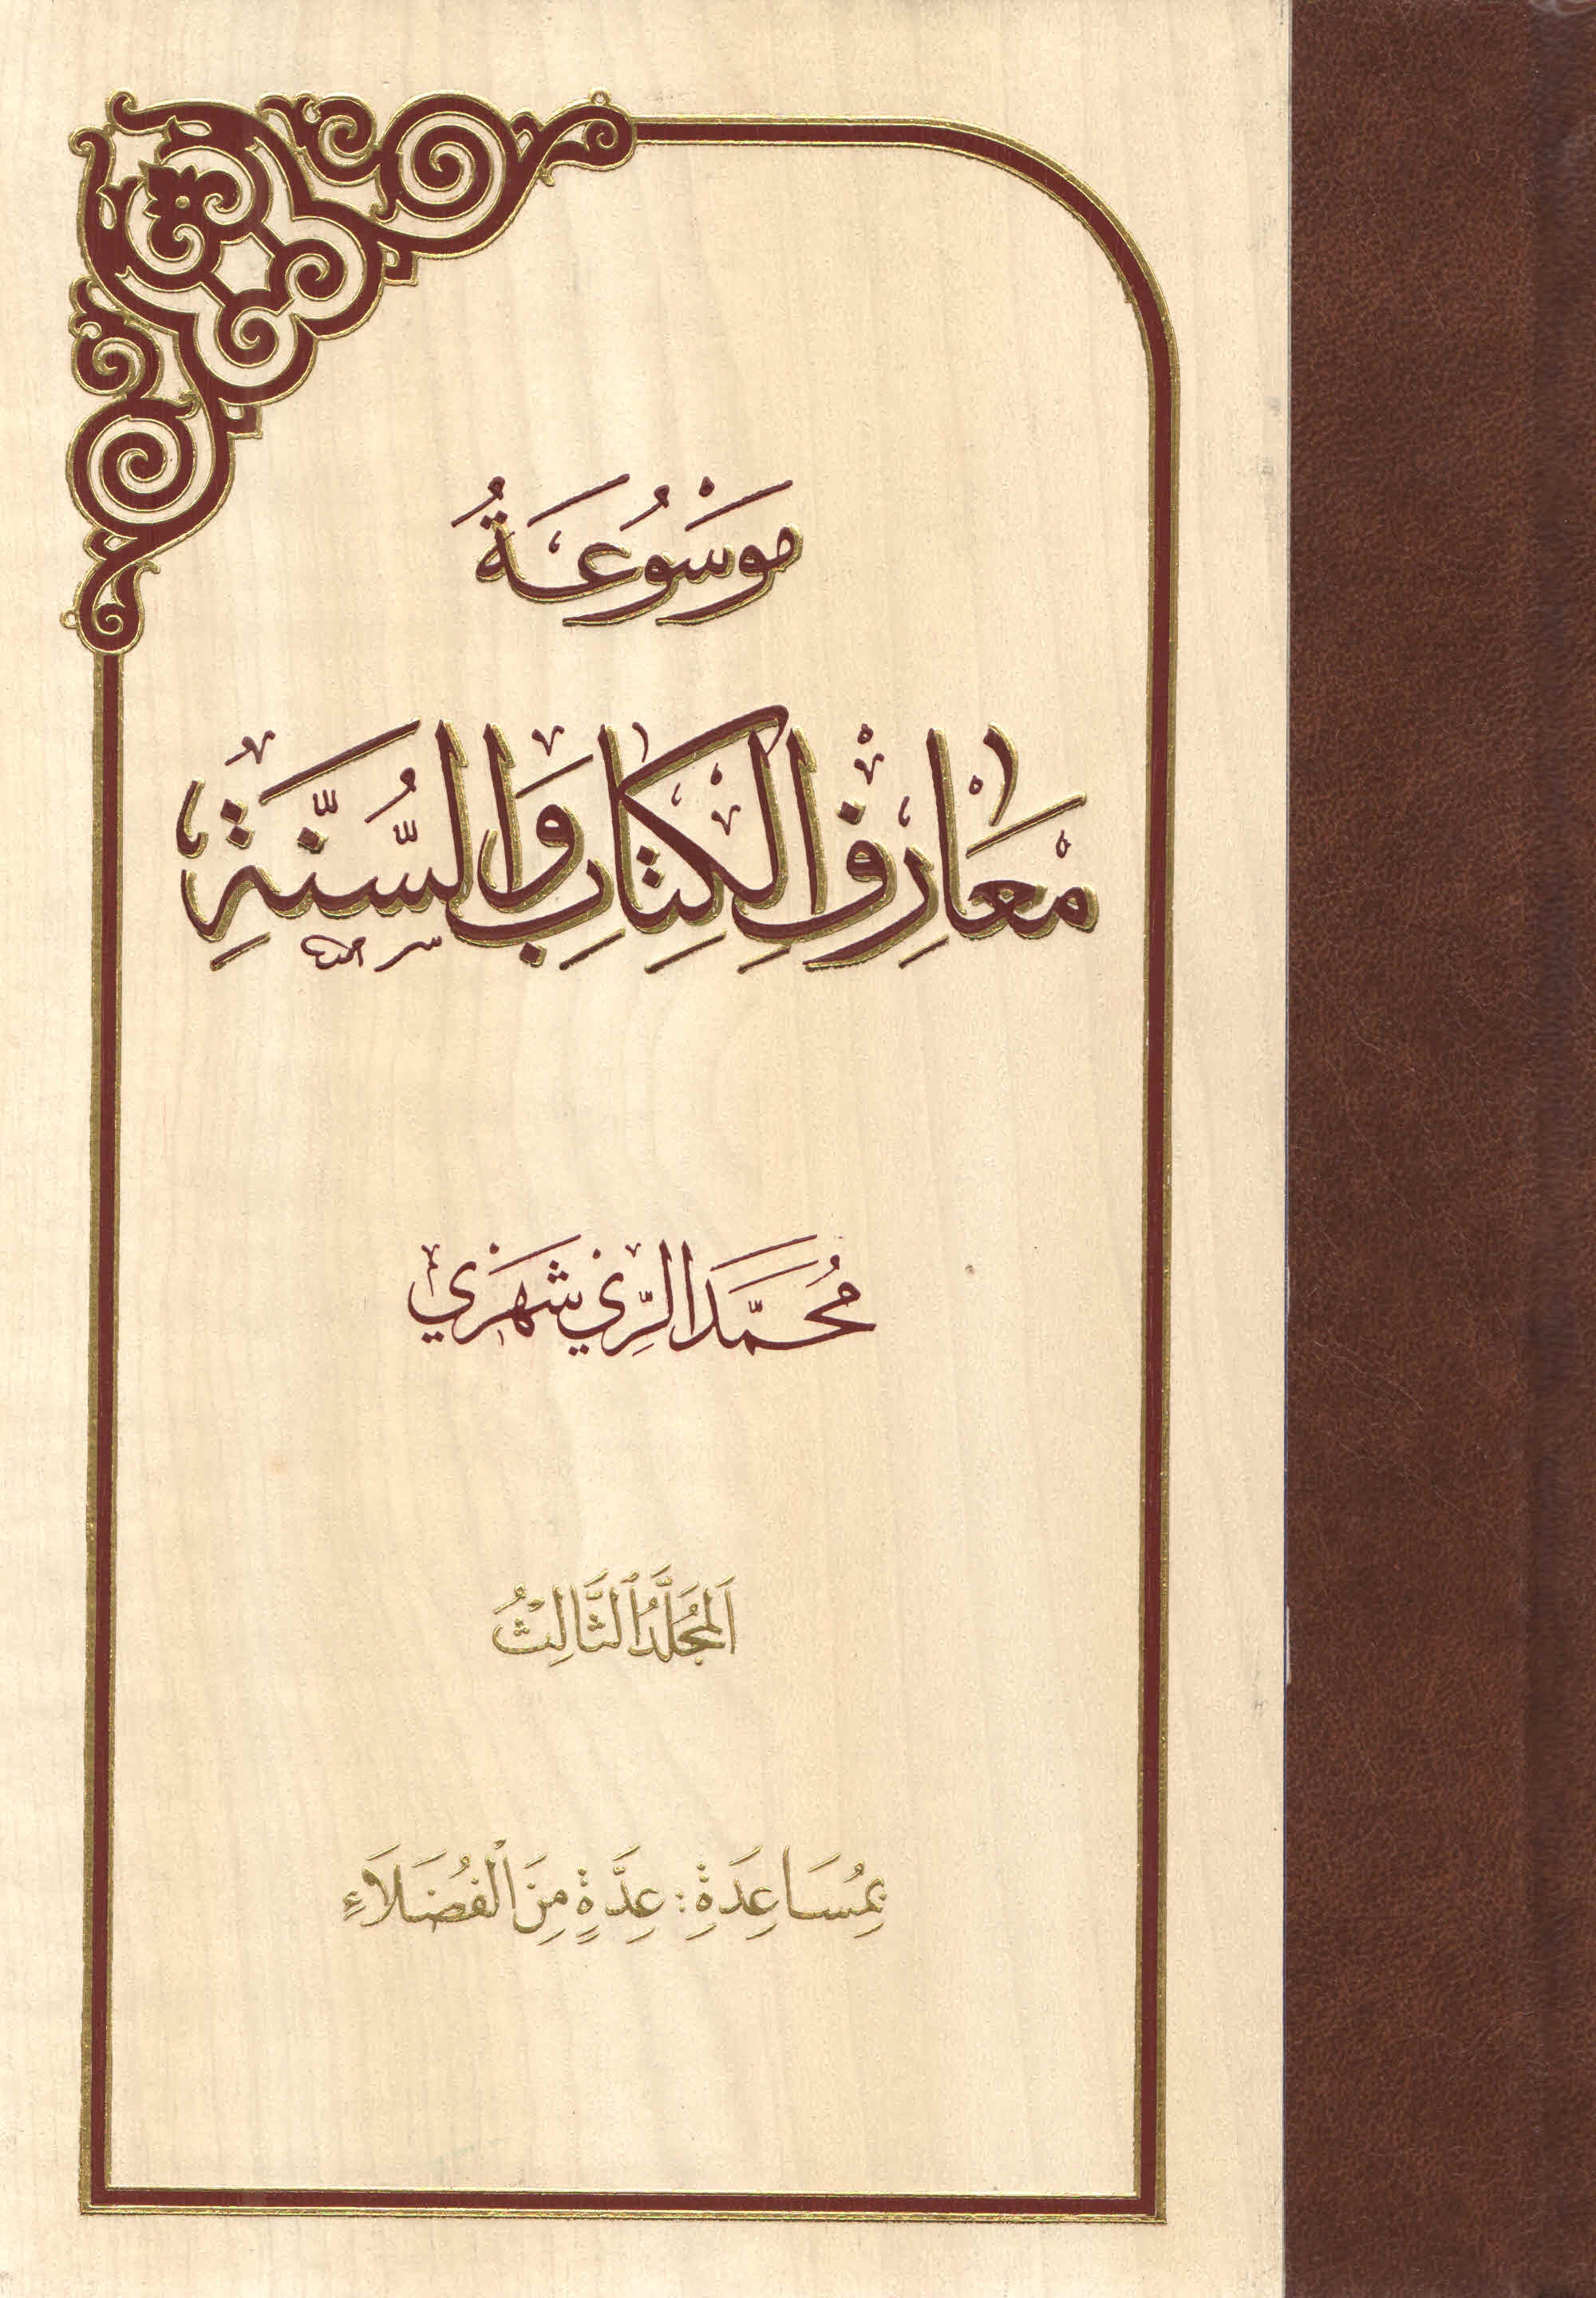 مَوْسُوعَةُ
مَعَارِفِ الْكِتَابِ وَالسُّنَّةِ
مُحَمَّد الرَّيْ شَهْرِي
اَلْمُجَلَّدُ الثَّالِثُ
بِمُسَاعِدَةِ : عِدَّةٍ مِنَ الْفُضَلَاءِ